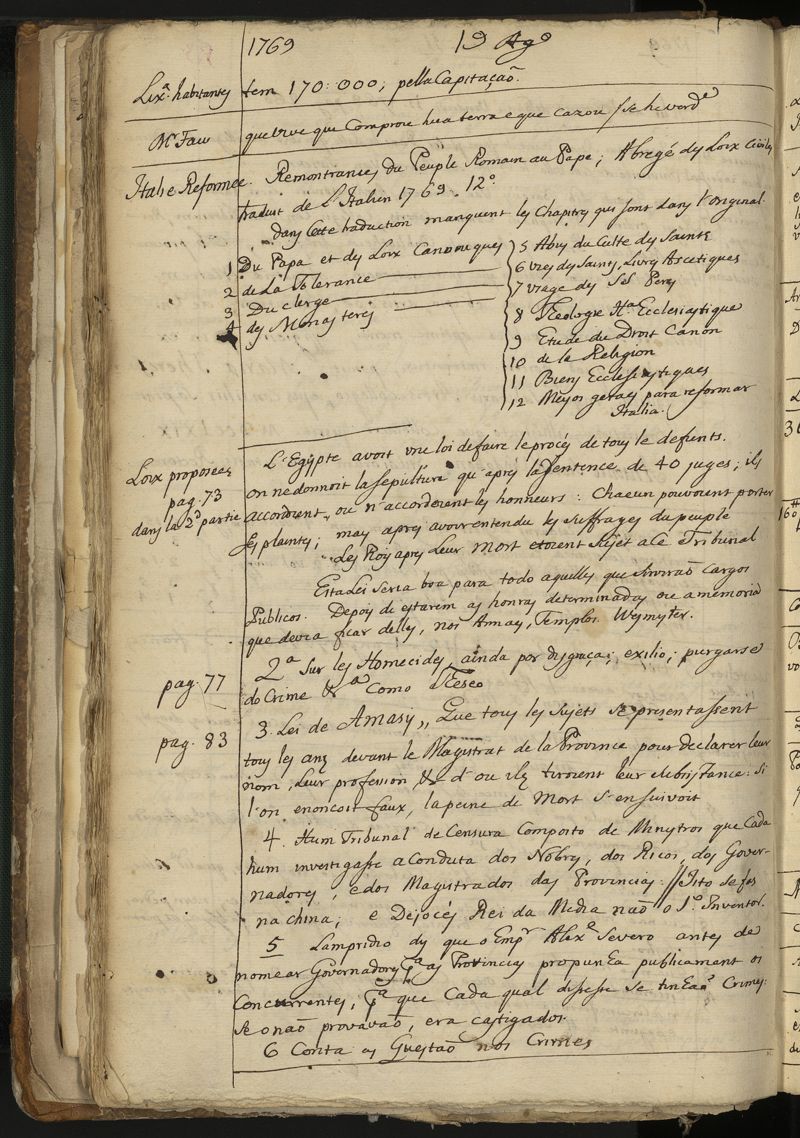 1769 19 Agº
Lixª. habitantes tem 170:000, pella Capitação.
Mr Faw que vive que comprou hua terra e que cazou / se he verdº
Italie Reformee. Remontrances du Peuple Romain au Pape; Abregé des Loix Civiles
traduit de L'Italien 1769. 12º.
dans cette traduction manquent les Chapitres qui sont dans l'original.
1 Du Papa et des Loix Canoniques
2 de La Tolerance
3 Du clerge
4 des Monasteres
5 Abus du Culte des Saints
6 Vies des Saints, Livres Ascetiques
7 des Sts Peres
8 Theologie Hª Ecclesiastique
9 Etude du Droit Canon
10 de la Religion
11 Biens Ecclesiastiques
12 Meyos geraes para reformar
Italia.
Loix proposées
pag. 73
dans la 2d partie
L'Egypte avoit une loi de faire le procés de tous le defunts.
on ne donnoit la sepulture qu'aprés la Sentence de 40 juges; ils
accordoient, ou n'accordoient les honneurs: Chacun pouvoient porter
ses plaintes; mais apres avoir entendu les suffrages du peuple
Les Roys apres leur mort etoient sujet a Ce Tribunal
Esta Lei seria boa para todo aquelles que serviraõ Cargos
Publicos. Depois de estarem as honras determinadas ou a memoria
que devia ficar delles, nos Annaes, Templos. Wesmyter.
pag. 77
2ª Sur les Homecides, ainda por disgraça; exilio; purgarse
do Crime &ª como Teseo
pag. 83
3. Lei de Amasis,, Que tous les sujets se presentassent
tous les ans devant le Magistrat de la Province pour declarer leur
nom, leur profession & d'ou ils tiroient leur subsistance: si
l'on enoncoit faux, la peine de Mort s'ensuivoit
4. Hum Tribunal de Censura Composto de Menystros que Cada
hum investigasse a Conduta dos Nobres, dos Ricos, dos Gover-
nadores, e dos Magistrados das Provincias: // Isto se fas
na China; e Dejocés Rei da Media naõ o 1º. Inventor.
5 Lampridio dis que o Empr Alexe Severo antes de
nomear Governadores pª as Provincias propunha publicament os
Concurrentes, pª que Cada qual dissesse se tinhaõ Crimes:
se o naõ provavaõ, era castigados.
6 Contra as Questaõ nos Crimes